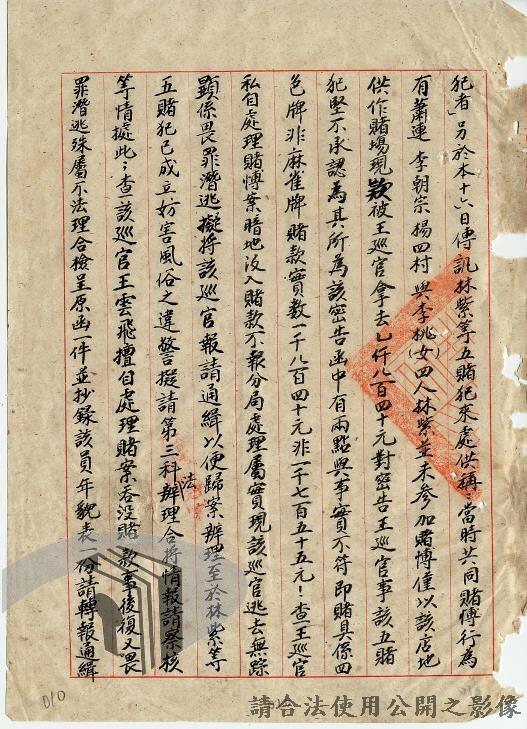 犯者」另於本十六日傳訊林紫等五賭犯來處供稱：當時共同賭博行為
有蕭連 李朝宗 楊四村 與李桃(女)四人林紫並未参加賭博僅以該店地
供作賭場現款被王巡官拿去乙仟八百四十元對密告王巡官事該五賭
犯堅不承認為其所為該密告函中有兩點與事實不符即賭具係四
色牌非麻雀牌賭款實数一千八百四十元非一千七百五十五元！查王巡官
私自處理賭博案暗地没入賭款不報分局處理屬實現該巡官逃去無踪
顯係畏罪潛逃擬將該巡官報請通緝以便歸案法辦理至於林紫等
五賭犯已成立妨害風俗之違警擬請第三科辦理合將情報請察核
等情據此；查該巡官王雲飛擅自處理賭案吞没賭款事後復又畏
罪潛逃殊屬不法理合檢呈原函一件並抄錄該員年貌表一份請轉報通緝
010
請合法使用公開之影像